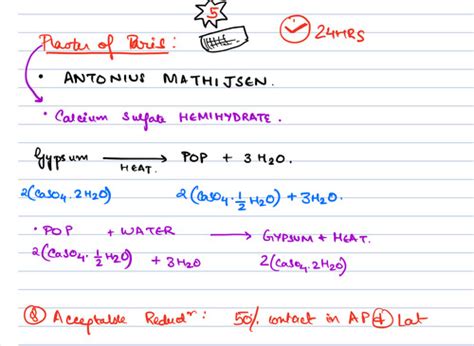 5
24HRS
Plaster of Paris :
• ANTONIUS MATHIJSEN.
• Calcium Sulfate HEMIHYDRATE.
Gypsum → POP + 3H2O.
HEAT.
2(CaSO4.2H2O) 2(CaSO4.½H2O) + 3H2O.
• POP + WATER → GYPSUM + HEAT.
2(CaSO4.½H2O) + 3H2O 2(CaSO4.2H2O)
Q Acceptable Reducⁿ : 50% contact in AP + Lat